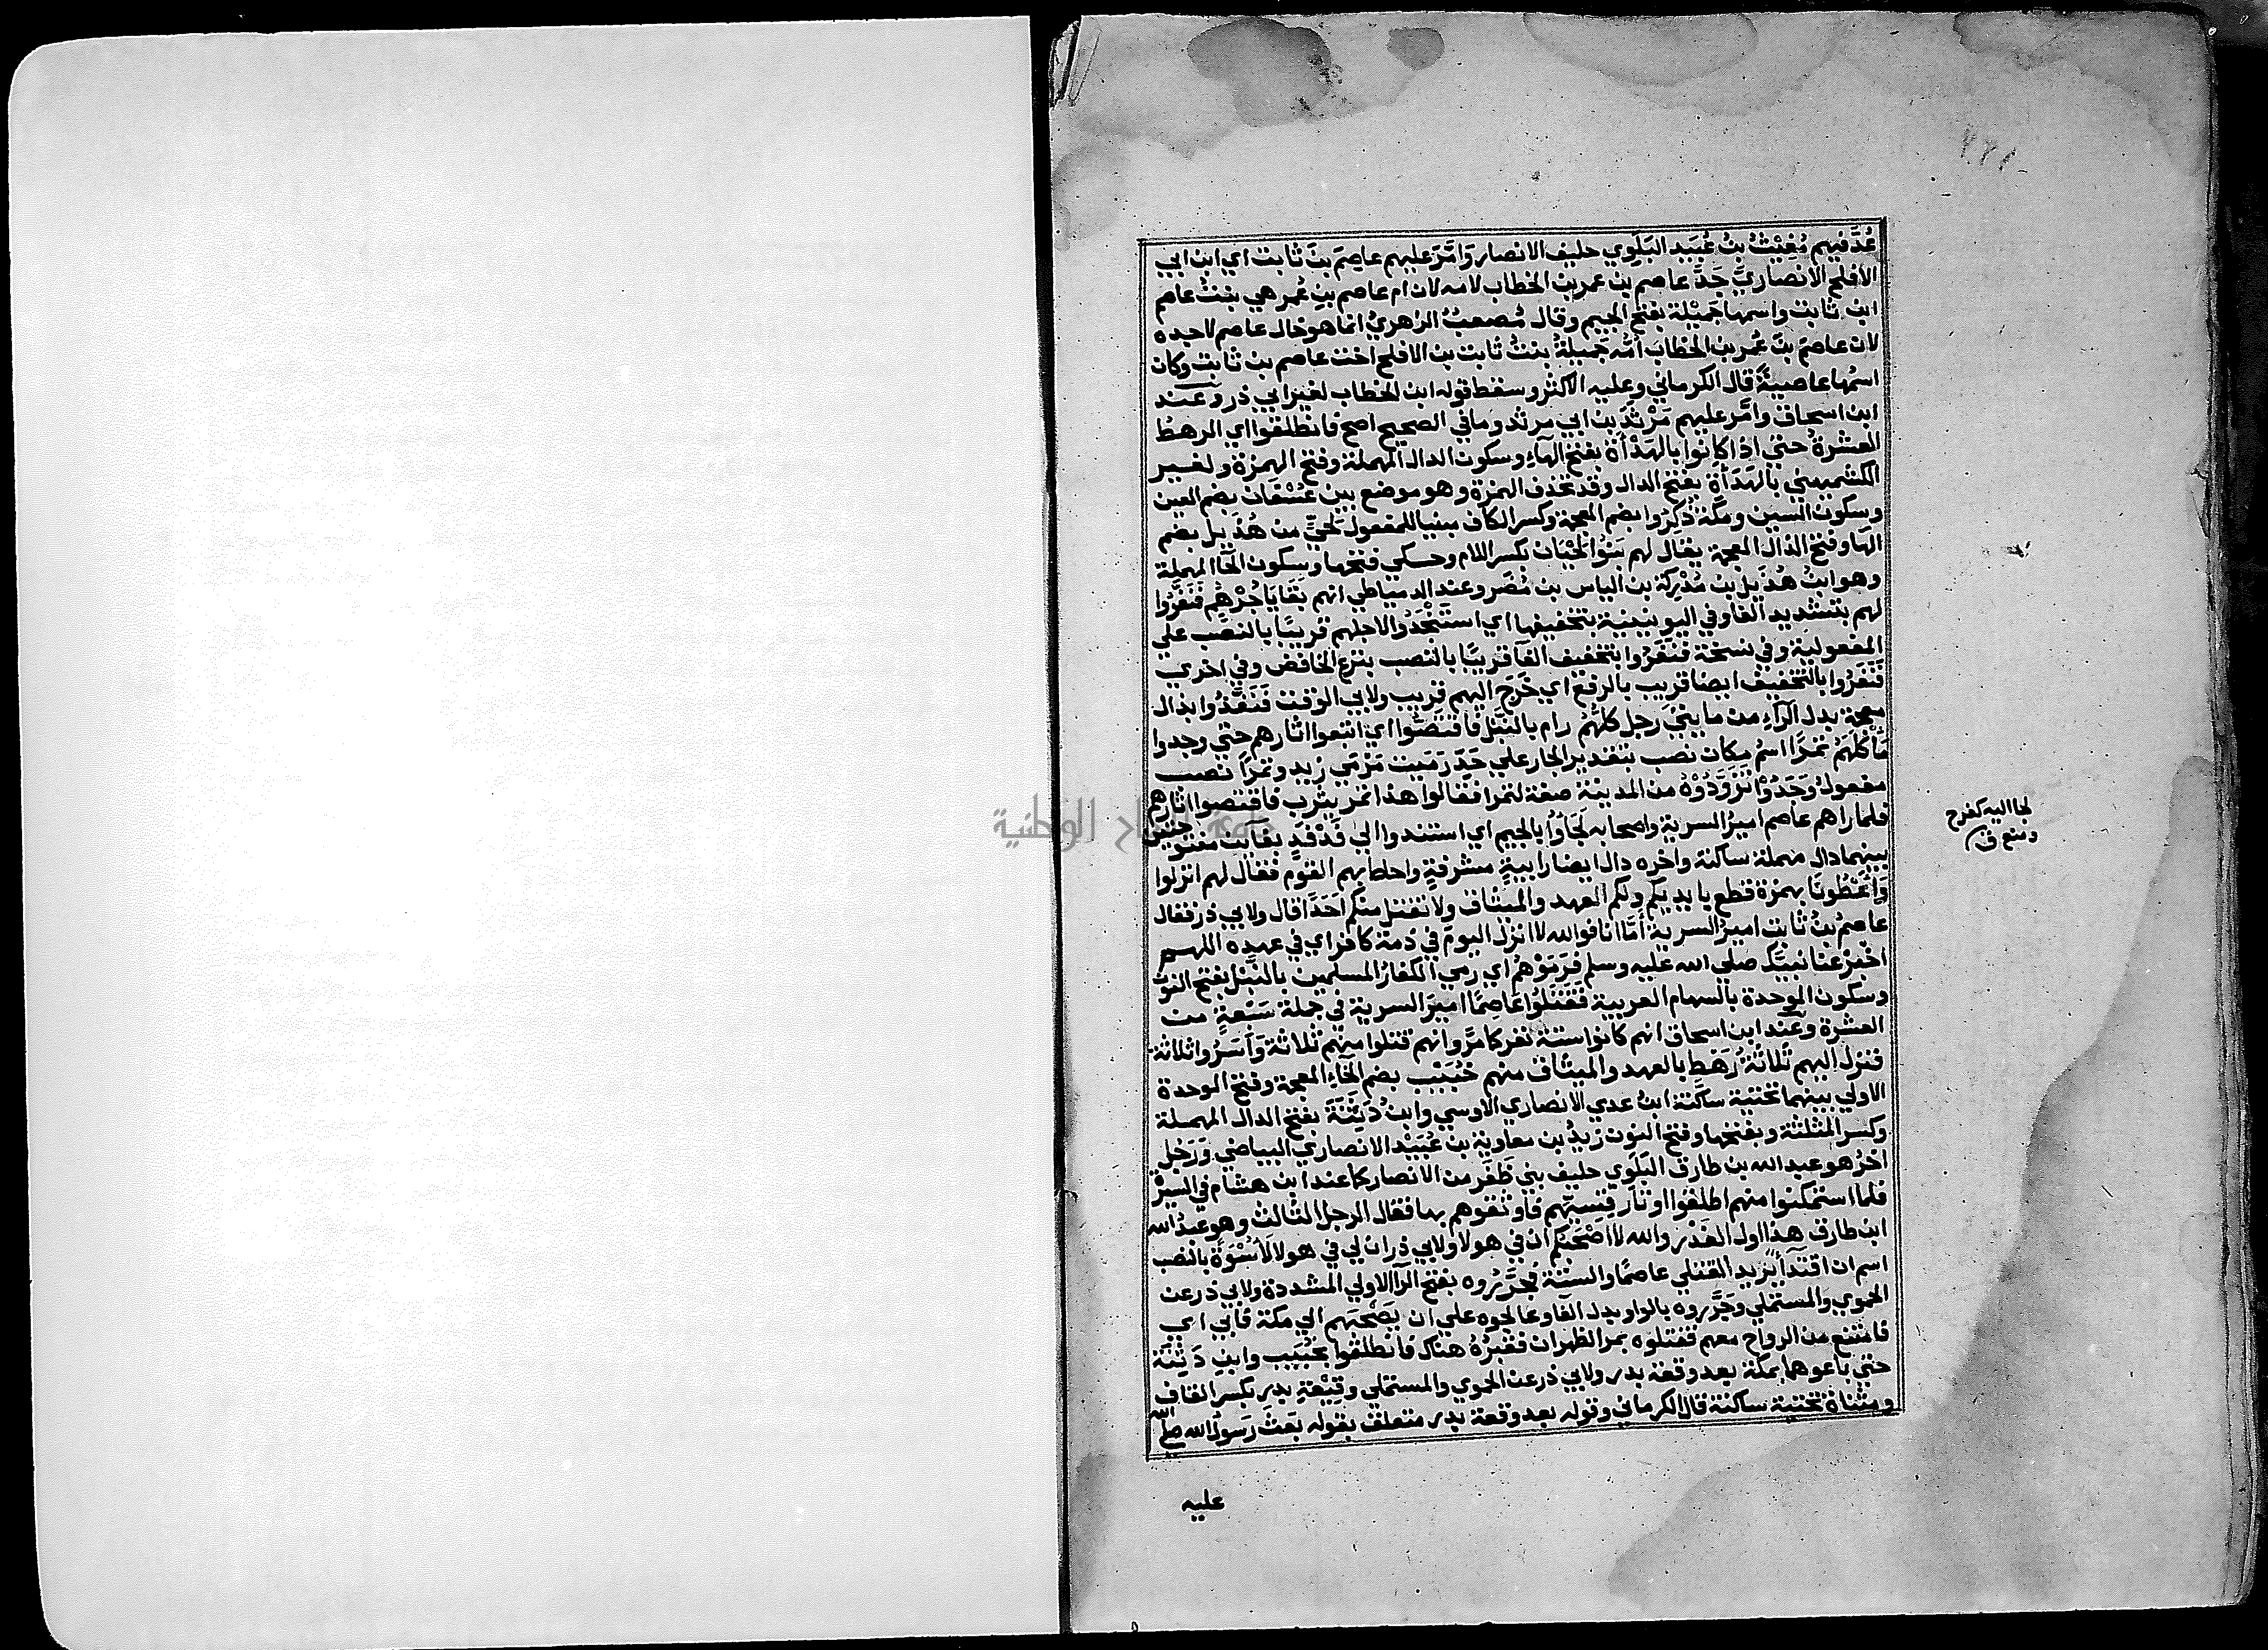 ٢٢١
عُدَّ فيهم مُغِيْثُ بنُ عُبَيد البَلَوي حليف الانصار وَامَّرَ عليهم عاصمَ بنَ ثابت اي ابن ابي
الاقلح الانصاريَّ جَدَّ عاصم بن عمر بن الخطاب لامه لان ام عاصم بن عُمر هي بنتُ عاصم
ابن ثابت واسمها جَمِيْلة بفتح الجيم وقال مُصعبُ الزهريُّ انما هو خال عاصم لا جده
لان عاصمَ بنَ عُمر بن الخطاب اُمُّه جميلةُ بنتُ ثابت بن الاقلح اخت عاصم بن ثابت وكان
اسمُها عاصيةً قال الكرماني وعليه الاكثر وسقط قوله ابن الخطاب لغير ابي ذر وعند
ابن اسحاق وامَّر عليهم مَرْثَدَ بن ابي مرثد وما في الصحيح اصح فانطلقوا اي الرهطُ
العشرةُ حتى اذا كانوا بالهَدْأَة بفتح الهاء وسكون الدال المهملة وفتح الهمزة ولغير
الكشميهني بالهَدَأَة بفتح الدال وقد تحذف الهمزة وهو موضع بين عُسْفان بضم العين
وسكون السين ومكة ذُكِرُوا بضم المعجمة وكسر الكاف مبنيا للمفعول لحَيٍّ من هُذَيل بضم
الها وفتح الذال المعجمة يقال لهم بَنُو الِحْيَان بكسر اللام وحكي فتحها وسكون الحآ المهملة
وهو ابنُ هُذَيل بن مُدْرِكة بن الياس بن مُضَر وعند الدمياطي انهم بَقايَا جُرْهُم فَنَفَّرُوا
لهم بتشديد الفا وفي اليونينية بتخفيفها اي استَنْجَدُوا لاجلهم قريبًا بالنصب علي
المفعولية وفي نسخة فَنَفَرُوا بتخفيف الفآ قريبًا بالنصب بنزع الخافض وفي اخري
فَنَفَرُوا بالتخفيف ايضا قريب بالرفع اي خَرَجَ اليهم قريب ولابي الوقت فَنَفَّذُوا بذال
معجمة بدل الرآء من مايتي رجل كلهُّم رام بالنَّبْل فاقتصُّوا اي اتبعوا اثارهم حتي وجدوا
مَأكَلَهُم تمرًا اسمُ مكان نصب بتقدير الجار علي حَدّ رَمَيت مَرْمَي زيد وتمرًا نصب
مفعولُ وَجَدُوْا تَزَوَّدُوْهُ من المدينة صفة لتمرا فقالوا هذا تمر يثرب فاقتصوا اثارهم
فلما راهم عاصم اميرُ السرية واصحابه لَجَأوُا بالجيم اي استندوا الي فَدْفَدٍ بفآءين مفتوحتين
بينهما دال مهملة ساكنة واخره دال ايضا رابيةٍ مشرفةٍ واحاط بهم القوم فقال لهم انزلوا
وَأَعْطُونَا بهمزة قطع بايديكم ولكم العهد والميثاق ولا نقتل منكم اَحَدًا قال ولابي ذر فقال
عاصمُ بنُ ثابت اميرُ السرية أمَّا انا فوالله لا انزل اليومَ في ذمة كافر اي في عهده اللهم
اخبر عنا نبيَّك صلى الله عليه وسلم فَرَمَوْهُم اي رمي الكفارُ المسلمين بالنَّبْل بفتح النون
وسكون الموحدة بالسهام العربية فَقَتَلُوا عَاصِمًا اميرَ السرية في جملة سَبْعةٍ من
العشرة وعند ابن اسحاق انهم كانوا ستة نفر كما مرَّ وانهم قتلوا منهم ثلاثة وَأَسَرُوا ثلاثة
فنزل اليهم ثلاثةُ رَهطٍ بالعهد والميثاق منهم خُبَيْب بضم الخآءِ المعجمة وفتح الموحدة
الاولي بينهما تحتية ساكنة ابنُ عدي الانصاري الاوسي وابنُ دَثِنَةَ بفتح الدال المهملة
وكسر المثلثة وبفتحها وفتح النون زيدُ بن معاوية بن عُبَيْد الانصاري البياضي وَرَجُل
اخرُ هو عبد الله بن طارق البَلَوي حليف بني ظَفَر من الانصار كما عند ابن هشام في السيرة
فلما استمكنوا منهم اطلقوا اوتار قِسِيِّهم فاوثقوهم بها فقال الرجل الثالث وهو عبدُ الله
ابن طارق هذا اول الغَدْر والله لا اَصْحَبُكم ان في هولا ولابي ذر ان لي في هولا لأُسْوَةً بالنصب
اسم ان اقتدآءً يريد القتلي عاصمًا والستة فجَرَّرُوه بفتح الرآ الاولي المشددة ولابي ذر عن
الحموي والمستملي وجَرَّروه بالواو بدل الفآ وعالجوه علي ان يَصْحَبَهم الي مكة فَابي اي
فامتنع من الرواح معهم فقتلوه بمر الظهران فقبْرُهُ هناك فانطلقوا بخُبَيب وابنِ دَثِنَة
حتي باعوهما بمكة بعد وقعة بدر ولابي ذر عن الحموي والمستملي وقِيْعَةِ بدرٍ بكسر القاف
ومثناة تحتية ساكنة قال الكرماني وقوله بعد وقعة بدر متعلق بقوله بعَثَ رَسولُ الله صلى الله
عليه
لجا اليه كفرح
ومنع ق